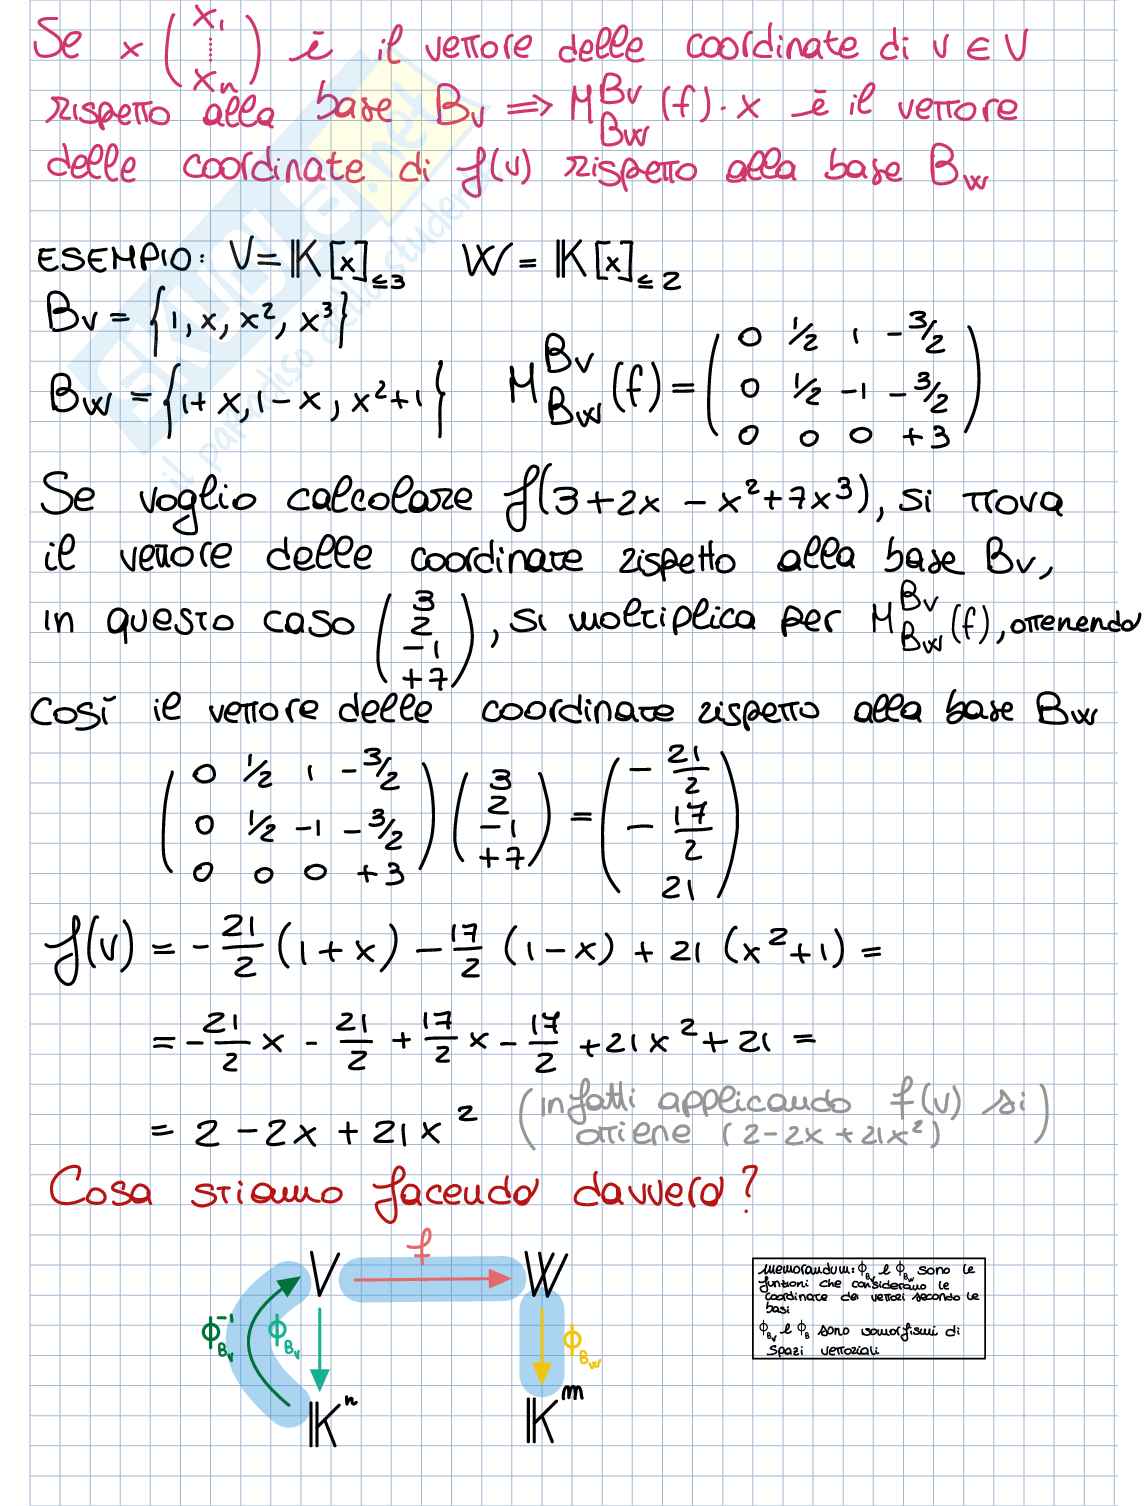 Se x (x₁ ⋮ xₙ) è il vettore delle coordinate di v ∈ V
rispetto alla base B_V ⇒ M^{B_V}_{B_W}(f)·x è il vettore
delle coordinate di f(v) rispetto alla base B_W
ESEMPIO: V = 𝕂[x]_{≤3} W = 𝕂[x]_{≤2}
B_V = {1, x, x², x³}
B_W = {1+x, 1-x, x²+1} M^{B_V}_{B_W}(f) = (0 1/2 1 -3/2
0 1/2 -1 -3/2
0 0 0 +3)
Se voglio calcolare f(3+2x-x²+7x³), si trova
il vettore delle coordinate rispetto alla base B_V,
in questo caso (3 2 -1 +7), si moltiplica per M^{B_V}_{B_W}(f), ottenendo
così il vettore delle coordinate rispetto alla base B_W
(0 1/2 1 -3/2
0 1/2 -1 -3/2
0 0 0 +3) (3 2 -1 +7) = (-21/2 -17/2 21)
f(v) = -21/2 (1+x) - 17/2 (1-x) + 21 (x²+1) =
= -21/2 x - 21/2 + 17/2 x - 17/2 + 21x² + 21 =
= 2 - 2x + 21x² (infatti applicando f(v) si
ottiene (2-2x+21x²))
Cosa stiamo facendo davvero?
V f W
ϕ⁻¹_{B_V} ϕ_{B_V} ϕ_{B_W}
𝕂ⁿ 𝕂ᵐ
memorandum: ϕ_{B_V} e ϕ_{B_W} sono le
funzioni che considerano le
coordinate dei vettori secondo le
basi
ϕ_{B_V} e ϕ_B sono isomorfismi di
spazi vettoriali
SKUOLA.net
il paradiso dello studente